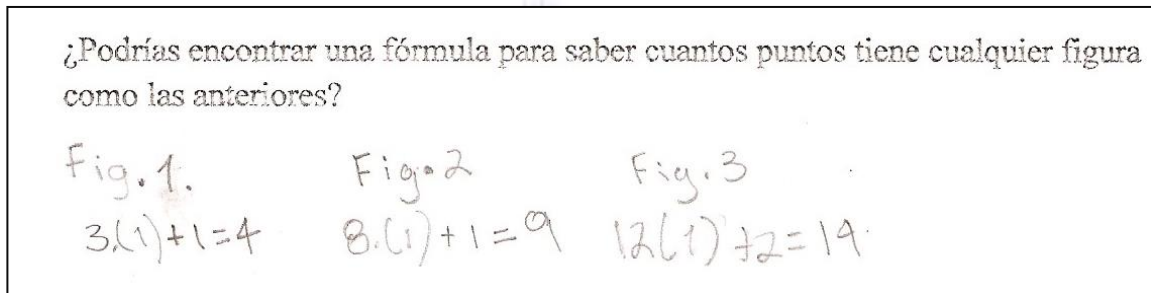 ¿Podrías encontrar una fórmula para saber cuantos puntos tiene cualquier figura
como las anteriores?
Fig. 1. Fig. 2 Fig. 3
3.(1)+1=4 8.(1)+1=9 12(1)+2=14.